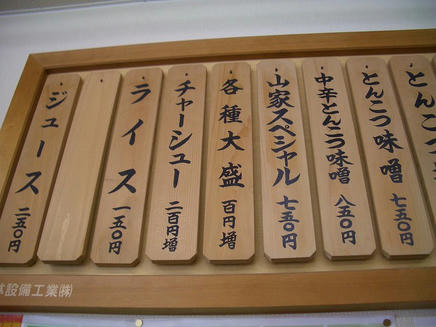 とん
とんこつ味噌 七五〇円
中辛とんこつ味噌 八五〇円
山家スペシャル 七五〇円
各種大盛 百円増
チャーシュー 二百円増
ライス 一五〇円
ジュース 二五〇円
設備工業㈱